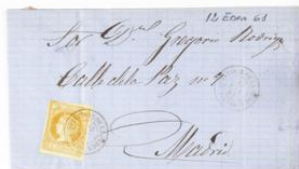 12 Enero 61
Sor Dn Gregorio Rodrigz
Calle de la Paz nº 9
Madrid